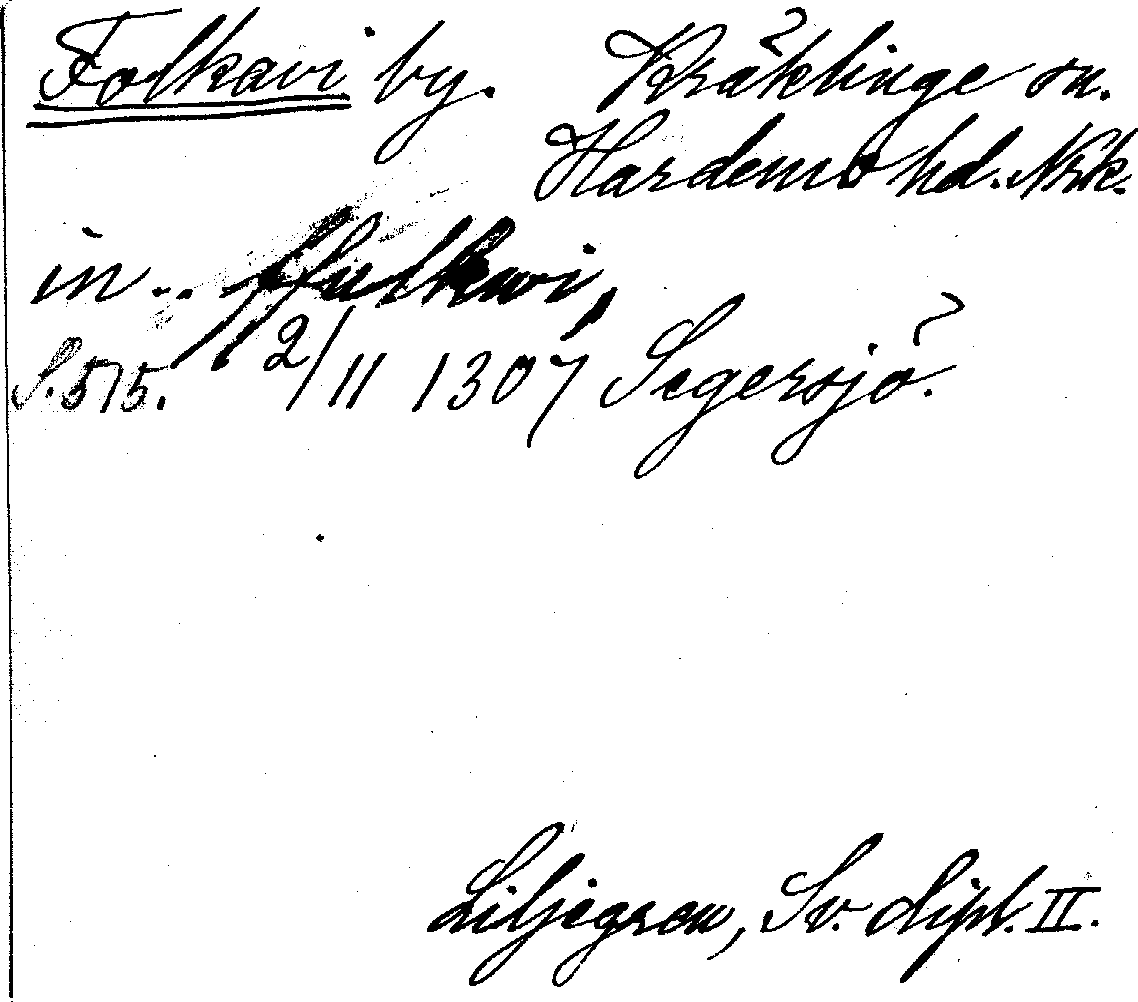 Folkavi by. Kräklinge sn.
Hardemo hd. Nrk.
in .. ffulkavi,
S. 515. 2/11 1307 Segersjö.
Liljegren, Sv. dipl. II.